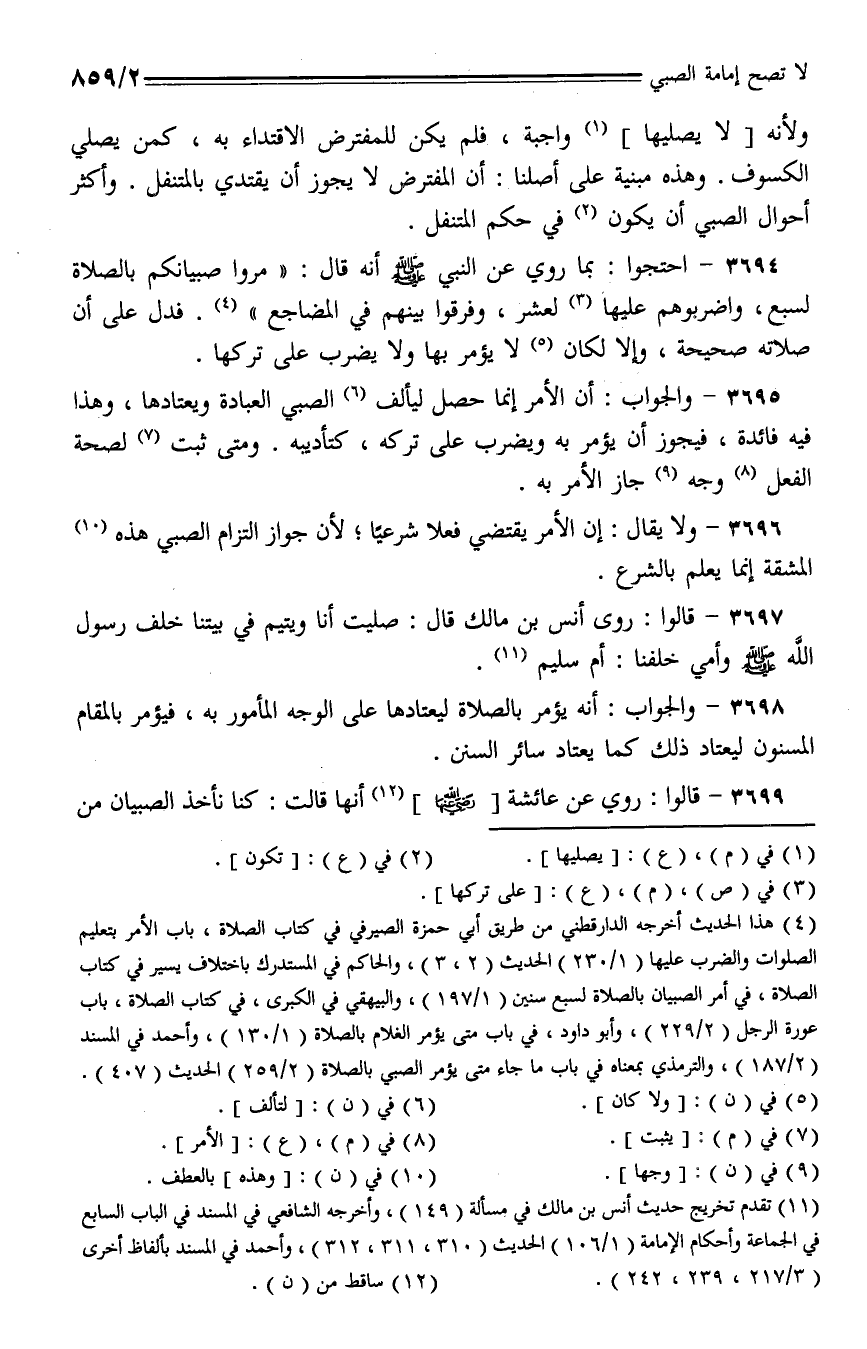 لا تصح إمامة الصبي ٨٥٩/٢
ولأنه [ لا يصليها ] (١) واجبة ، فلم يكن للمفترض الاقتداء به ، كمن يصلي
الكسوف . وهذه مبنية على أصلنا : أن المفترض لا يجوز أن يقتدي بالمتنفل . وأكثر
أحوال الصبي أن يكون (٢) في حكم المتنفل .
٣٦٩٤ - احتجوا : بما روي عن النبي ﷺ أنه قال : « مروا صبيانكم بالصلاة
لسبع، واضربوهم عليها (٣) لعشر ، وفرقوا بينهم في المضاجع » (٤) . فدل على أن
صلاته صحيحة ، وإلا لكان (٥) لا يؤمر بها ولا يضرب على تركها .
٣٦٩٥ - والجواب : أن الأمر إنما حصل ليألف (٦) الصبي العبادة ويعتادها ، وهذا
فيه فائدة ، فيجوز أن يؤمر به ويضرب على تركه ، كتأديبه . ومتى ثبت (٧) لصحة
الفعل (٨) وجه (٩) جاز الأمر به .
٣٦٩٦ - ولا يقال : إن الأمر يقتضي فعلا شرعيًا ؛ لأن جواز التزام الصبي هذه (١٠)
المشقة إنما يعلم بالشرع .
٣٦٩٧ - قالوا : روى أنس بن مالك قال : صليت أنا ويتيم في بيتنا خلف رسول
اللَّه ﷺ وأمي خلفنا : أم سليم (١١) .
٣٦٩٨ - والجواب : أنه يؤمر بالصلاة ليعتادها على الوجه المأمور به ، فيؤمر بالمقام
المسنون ليعتاد ذلك كما يعتاد سائر السنن .
٣٦٩٩ - قالوا : روي عن عائشة [ رضي الله عنها ] (١٢) أنها قالت : كنا نأخذ الصبيان من
(١) في ( م ) ، ( ع ) : [ يصليها ] . (٢) في ( ع ) : [ تكون ] .
(٣) في ( ص ) ، ( م ) ، ( ع ) : [ على تركها ] .
(٤) هذا الحديث أخرجه الدارقطني من طريق أبي حمزة الصيرفي في كتاب الصلاة ، باب الأمر بتعليم
الصلوات والضرب عليها ( ٢٣٠/١ ) الحديث ( ٢ ، ٣ ) ، والحاكم في المستدرك باختلاف يسير في كتاب
الصلاة ، في أمر الصبيان بالصلاة لسبع سنين ( ١٩٧/١ ) ، والبيهقي في الكبرى ، في كتاب الصلاة ، باب
عورة الرجل ( ٢٢٩/٢ ) ، وأبو داود ، في باب متى يؤمر الغلام بالصلاة ( ١٣٠/١ ) ، وأحمد في المسند
( ١٨٧/٢ ) ، والترمذي بمعناه في باب ما جاء متى يؤمر الصبي بالصلاة ( ٢٥٩/٢ ) الحديث ( ٤٠٧ ) .
(٥) في ( ن ) : [ ولا كان ] . (٦) في ( ن ) : [ لتألف ] .
(٧) في ( م ) : [ يثبت ] . (٨) في ( م ) ، ( ع ) : [ الأمر ] .
(٩) في ( ن ) : [ وجها ] . (١٠) في ( ن ) : [ وهذه ] بالعطف .
(١١) تقدم تخريج حديث أنس بن مالك في مسألة ( ١٤٩ ) ، وأخرجه الشافعي في المسند في الباب السابع
في الجماعة وأحكام الإمامة ( ١٠٦/١ ) الحديث ( ٣١٠ ، ٣١١ ، ٣١٢ ) ، وأحمد في المسند بألفاظ أخرى
( ٢١٧/٣ ، ٢٣٩ ، ٢٤٢ ) . (١٢) ساقط من ( ن ) .